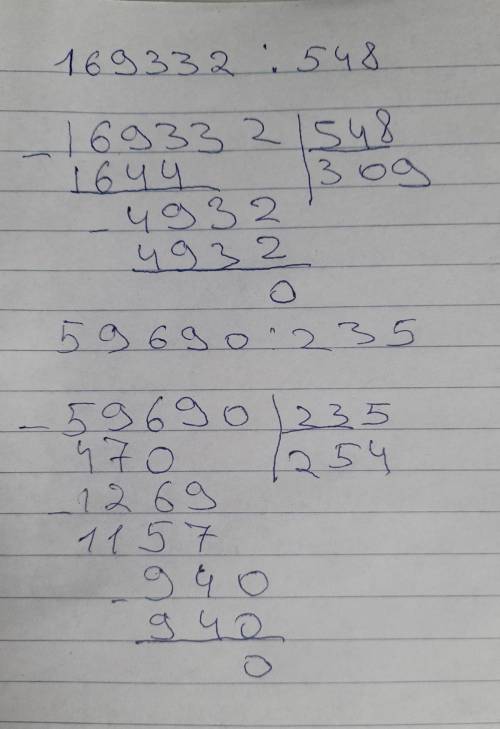 169332 : 548
- 169332 | 548
1644 | 309
- 4932
4932
0
59690 : 235
- 59690 | 235
470 | 254
- 1269
1157
- 940
940
0